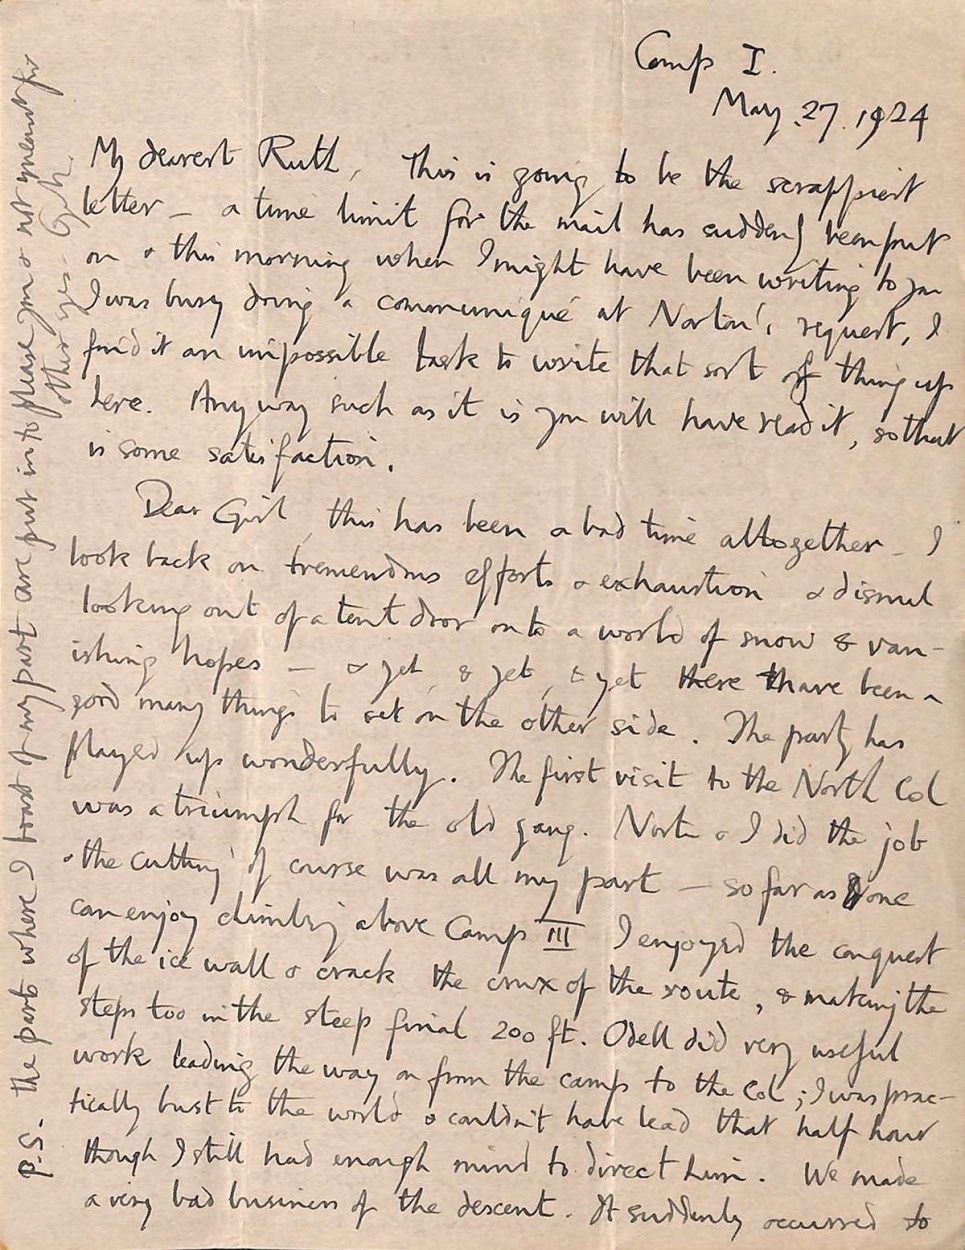 Camp I.
May .27. 1924
My dearest Ruth, This is going to be the scrappiest
letter – a time limit for the mail has suddenly been put
on & this morning when I might have been writing to you
I was busy doing a communiqué at Norton's request, I
find it an impossible task to write that sort of thing up
here. Anyway such as it is you will have read it, so that
is some satisfaction.
Dear Girl, this has been a bad time altogether – I
look back on tremendous efforts & exhaustion & dismal
looking out of a tent door onto a world of snow & van-
ishing hopes – & yet, & yet, & yet there have been a
good many things to set on the other side. The party has
played up wonderfully. The first visit to the North Col
was a triumph for the old gang. Norton & I did the job
& the cutting of course was all my part – so far as one
can enjoy climbing above Camp III I enjoyed the conquest
of the ice wall & crack the crux of the route, & making the
steps too in the steep final 200 ft. Odell did very useful
work leading the way on from the camp to the Col; I was prac-
tically bust to the world & couldn't have lead that half hour
though I still had enough mind to direct him. We made
a very bad business of the descent. It suddenly occurred to
P.S. The parts where I boast of my part are put in to please you & not meant for
other eyes. G.L.M.